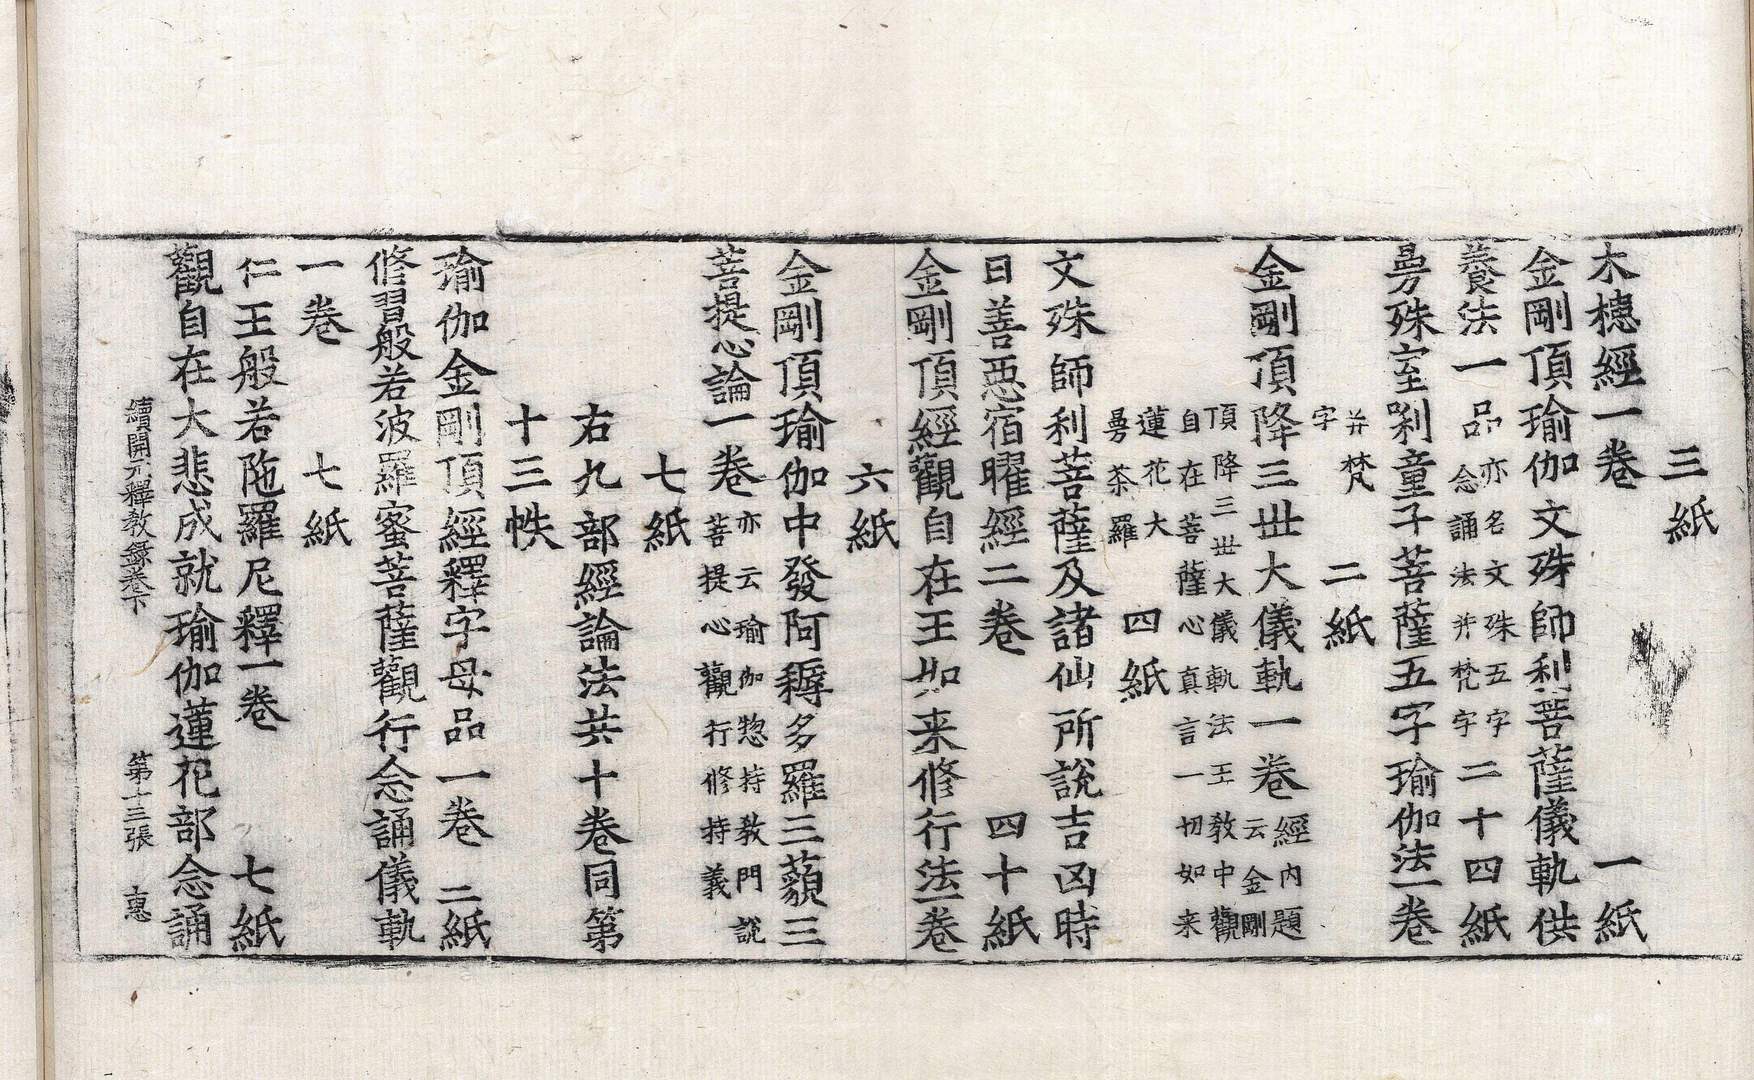 三紙
木槵經一卷 一紙
金剛頂瑜伽文殊師利菩薩儀軌供
養法一品亦名文殊五字念誦法并梵字二十四紙
曼殊室唎童子菩薩五字瑜伽法一卷
并梵字 二紙
金剛頂降三世大儀軌一卷經內題云金剛
頂降三世大儀軌法王教中觀自在菩薩心真言一切如来
蓮花大曼荼羅 四紙
文殊師利菩薩及諸仙所說吉凶時
日善惡宿曜經二卷 四十紙
金剛頂經觀自在王如来修行法一卷
六紙
金剛頂瑜伽中發阿耨多羅三藐三
菩提心論一卷亦云瑜伽惣持教門說菩提心觀行修持義
七紙
右九部經論法共十卷同第
十三帙
瑜伽金剛頂經釋字母品一卷 二紙
修習般若波羅蜜菩薩觀行念誦儀軌
一卷 七紙
仁王般若陁羅尼釋一卷 七紙
觀自在大悲成就瑜伽蓮花部念誦
續開元釋教錄卷下 第十三張 惠